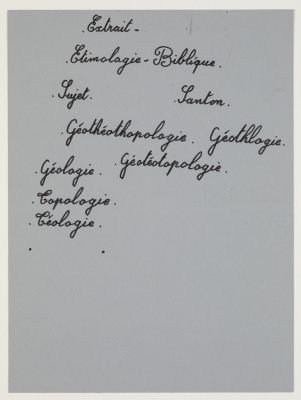 .Extrait-
.Etimologie-Biblique.
.Sujet. .Santon.
.Géothéothopologie. Géothlogie.
.Géologie. .Géotéotopologie.
.Topologie.
.Téologie.
. .